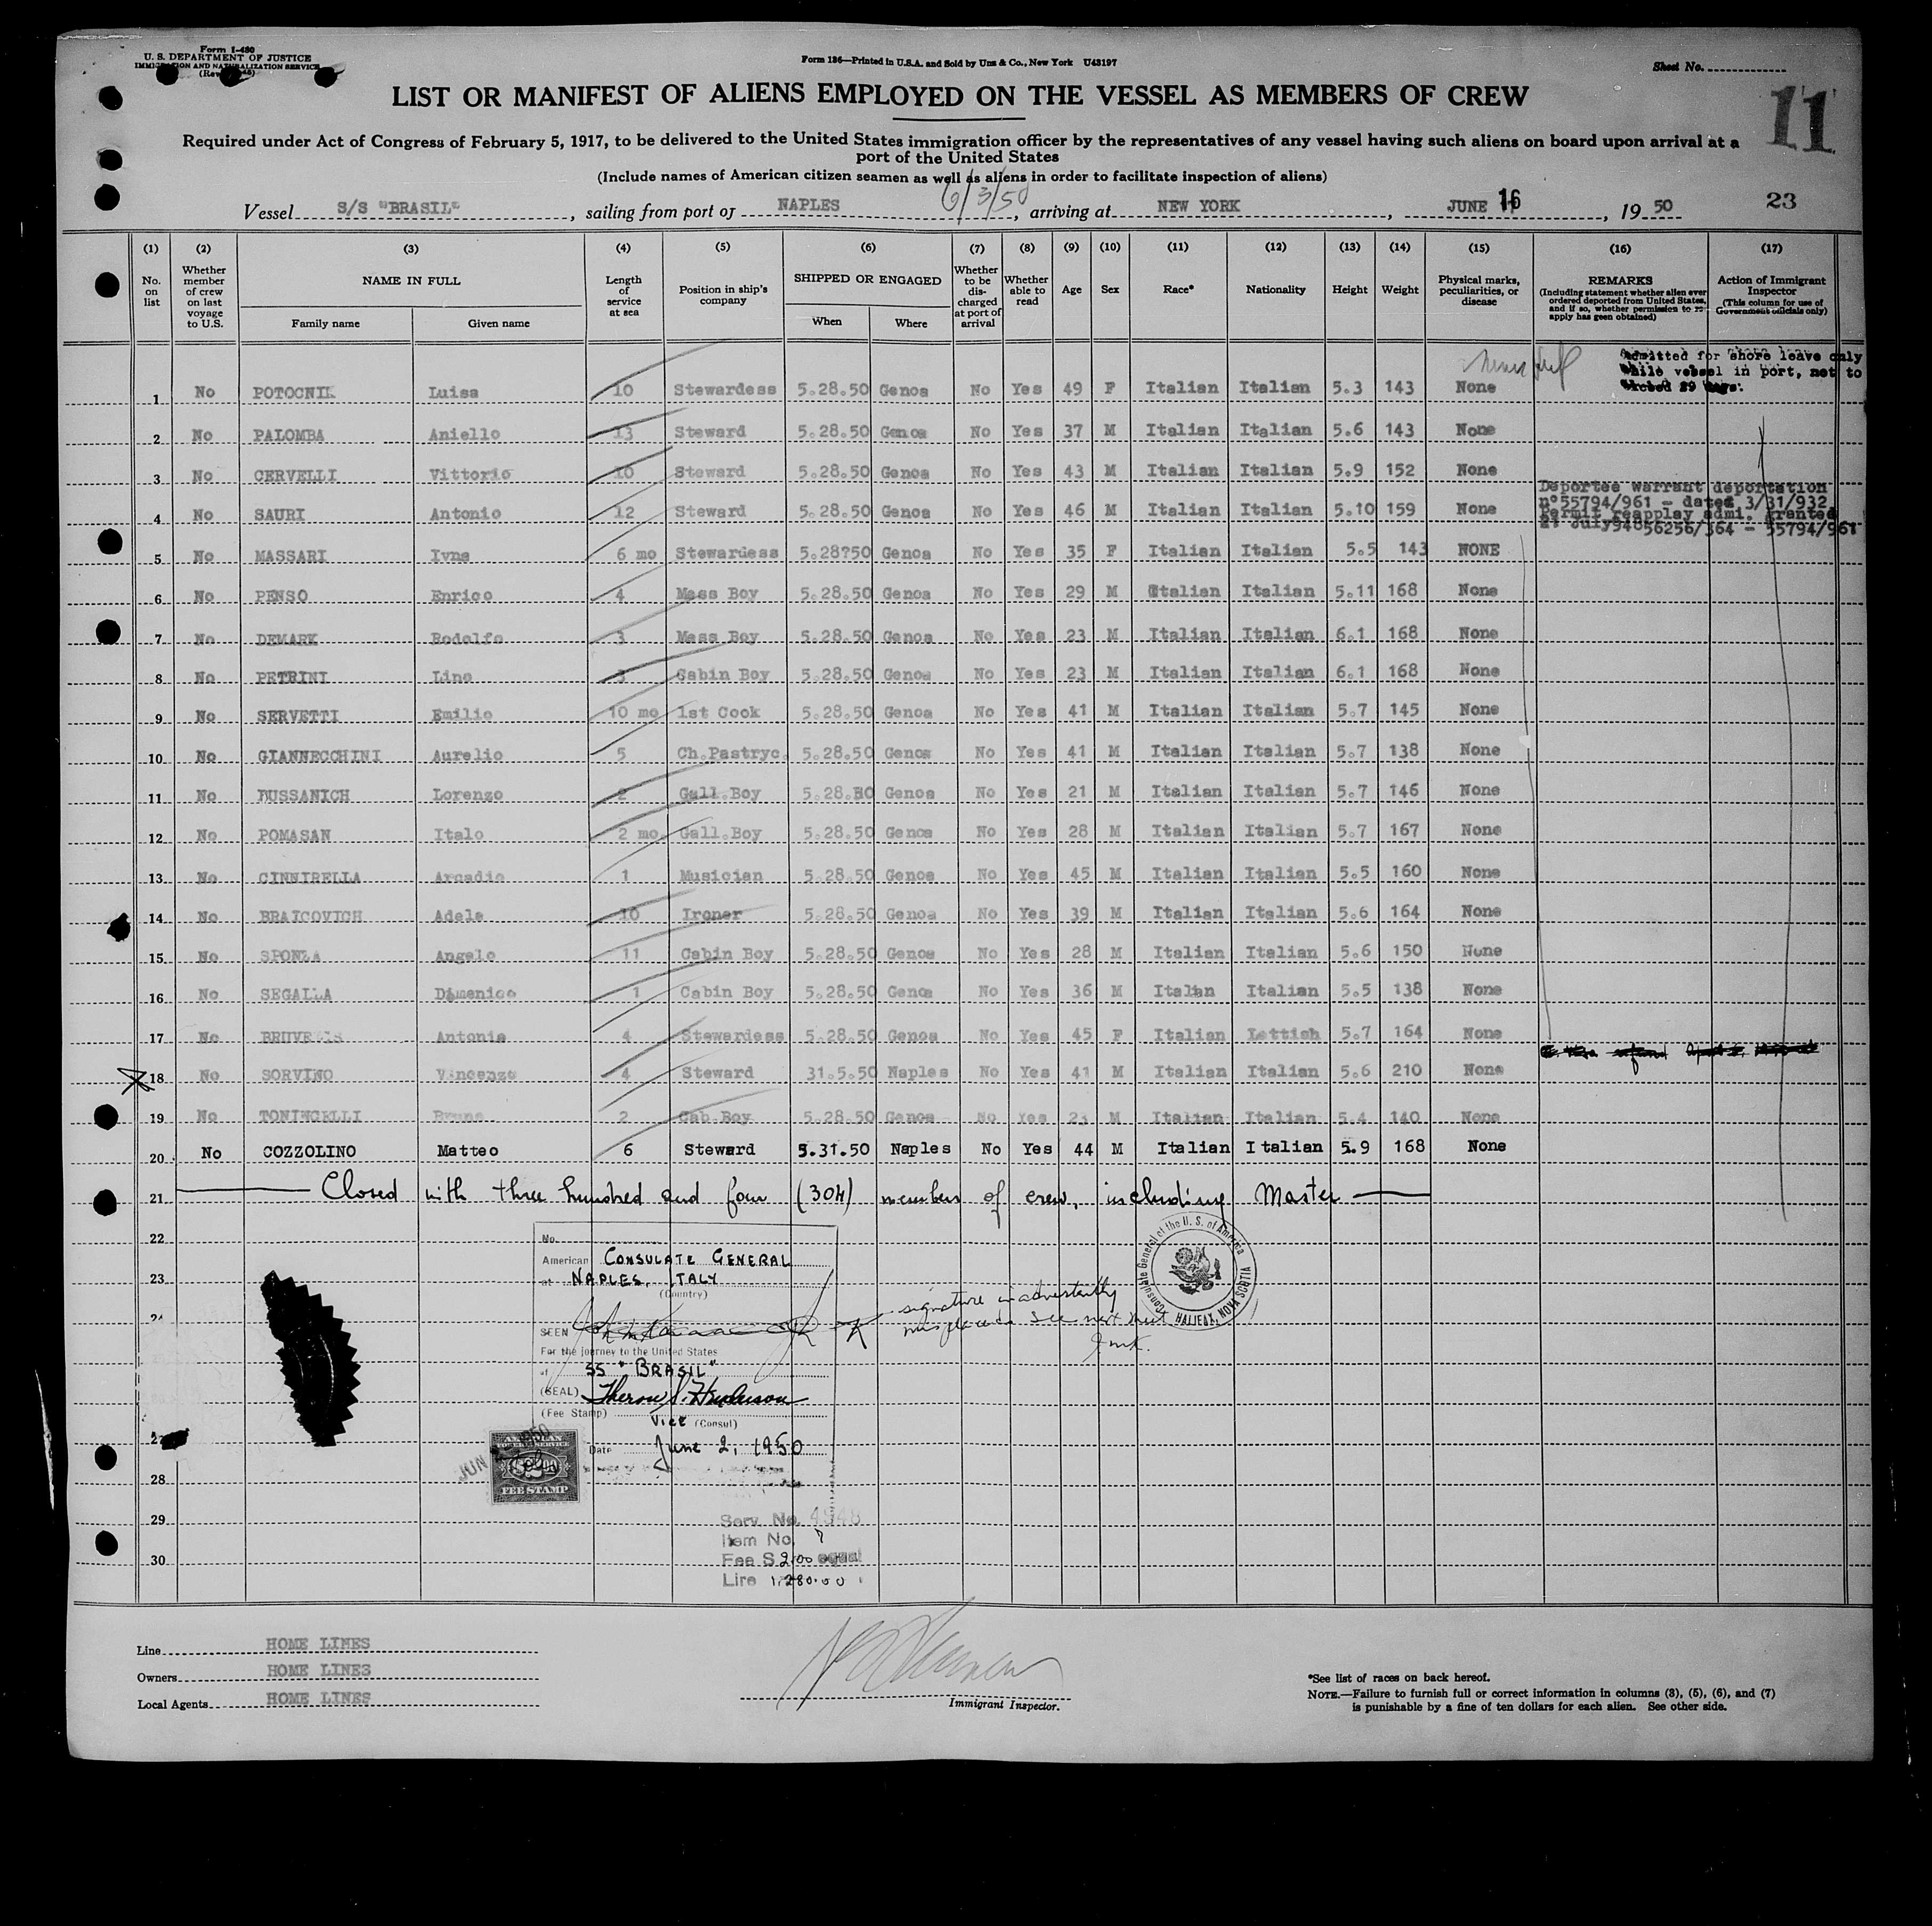 Form I-480
U. S. DEPARTMENT OF JUSTICE
IMMIGRATION AND NATURALIZATION SERVICE
Form 126—Printed in U.S.A. and Sold by Unz & Co., New York U43197
Sheet No.
LIST OR MANIFEST OF ALIENS EMPLOYED ON THE VESSEL AS MEMBERS OF CREW
11
Required under Act of Congress of February 5, 1917, to be delivered to the United States immigration officer by the representatives of any vessel having such aliens on board upon arrival at a
port of the United States
(Include names of American citizen seamen as well as aliens in order to facilitate inspection of aliens)
6/3/50
Vessel S/S "BRASIL", sailing from port of NAPLES, arriving at NEW YORK, JUNE 16, 1950 23
(1) (2) (3) (4) (5) (6) (7) (8) (9) (10) (11) (12) (13) (14) (15) (16) (17)
No. on list
Whether member of crew on last voyage to U.S.
NAME IN FULL
Family name Given name
Length of service at sea
Position in ship's company
SHIPPED OR ENGAGED
When Where
Whether to be discharged at port of arrival
Whether able to read
Age Sex Race* Nationality Height Weight
Physical marks, peculiarities, or disease
REMARKS
(Including statement whether alien ever ordered deported from United States, and if so, whether permission to re-apply has been obtained)
Action of Immigrant Inspector
(This column for use of Government officials only)
Admitted for shore leave only
while vessel in port, not to
exceed 29 days.
1 No POTOCNIK Luisa 10 Stewardess 5.28.50 Genoa No Yes 49 F Italian Italian 5.3 143 None
2 No PALOMBA Aniello 13 Steward 5.28.50 Genoa No Yes 37 M Italian Italian 5.6 143 None
3 No CERVELLI Vittorio 10 Steward 5.28.50 Genoa No Yes 43 M Italian Italian 5.9 152 None
Deportee warrant deportation
n°55794/961 - dated 3/31/932
Permit reapplay admi. granted
21 July94056256/364 - 55794/961
4 No SAURI Antonio 12 Steward 5.28.50 Genoa No Yes 46 M Italian Italian 5.10 159 None
5 No MASSARI Ivna 6 mo Stewardess 5.28?50 Genoa No Yes 35 F Italian Italian 5.5 143 NONE
6 No PENSO Enrico 4 Mess Boy 5.28.50 Genoa No Yes 29 M Italian Italian 5.11 168 None
7 No DEMARK Rodolfo 3 Mess Boy 5.28.50 Genoa No Yes 23 M Italian Italian 6.1 168 None
8 No PETRINI Lino 3 Cabin Boy 5.28.50 Genoa No Yes 23 M Italian Italian 6.1 168 None
9 No SERVETTI Emilio 10 mo 1st Cook 5.28.50 Genoa No Yes 41 M Italian Italian 5.7 145 None
10 No GIANNECCHINI Aurelio 5 Ch.Pastryc. 5.28.50 Genoa No Yes 41 M Italian Italian 5.7 138 None
11 No BUSSANICH Lorenzo 2 Gall.Boy 5.28.50 Genoa No Yes 21 M Italian Italian 5.7 146 None
12 No POMASAN Italo 2 mo. Gall.Boy 5.28.50 Genoa No Yes 28 M Italian Italian 5.7 167 None
13 No CINNIRELLA Arcadio 1 Musician 5.28.50 Genoa No Yes 45 M Italian Italian 5.5 160 None
14 No BRAICOVICH Adele 10 Ironer 5.28.50 Genoa No Yes 39 M Italian Italian 5.6 164 None
15 No SPONZA Angelo 11 Cabin Boy 5.28.50 Genoa No Yes 28 M Italian Italian 5.6 150 None
16 No SEGALLA Dimenico 1 Cabin Boy 5.28.50 Genoa No Yes 36 M Italian Italian 5.5 138 None
17 No Antonia 4 Stewardess 5.28.50 Genoa No Yes 45 F Italian Lettish 5.7 164 None
18 No SORVINO Vincenzo 4 Steward 31.5.50 Naples No Yes 41 M Italian Italian 5.6 210 None
19 No TONINCELLI Bruno 2 Cab.Boy 5.28.50 Genoa No Yes 23 M Italian Italian 5.4 140 None
20 No COZZOLINO Matteo 6 Steward 5.31.50 Naples No Yes 44 M Italian Italian 5.9 168 None
21 Closed with three hundred and four (304) members of crew, including Master
22
23
24
28
29
30
No.
American CONSULATE GENERAL
at NAPLES, ITALY
(Country)
SEEN
For the journey to the United States
of SS "BRASIL"
(SEAL) Theron S. Henderson
(Fee Stamp) Vice (Consul)
Date June 2, 1950
signature inadvertently
misplaced. See next sheet
Jmk.
Consulate General of the U. S. of America
HALIFAX, NOVA SCOTIA
JUN 2 1950
FEE STAMP
Serv. No. 4948
Item No. 7
Fee $ 2.00 equal
Lire 1,280.00
Line HOME LINES
Owners HOME LINES
Local Agents HOME LINES
Immigrant Inspector.
*See list of races on back hereof.
NOTE.—Failure to furnish full or correct information in columns (3), (5), (6), and (7)
is punishable by a fine of ten dollars for each alien. See other side.